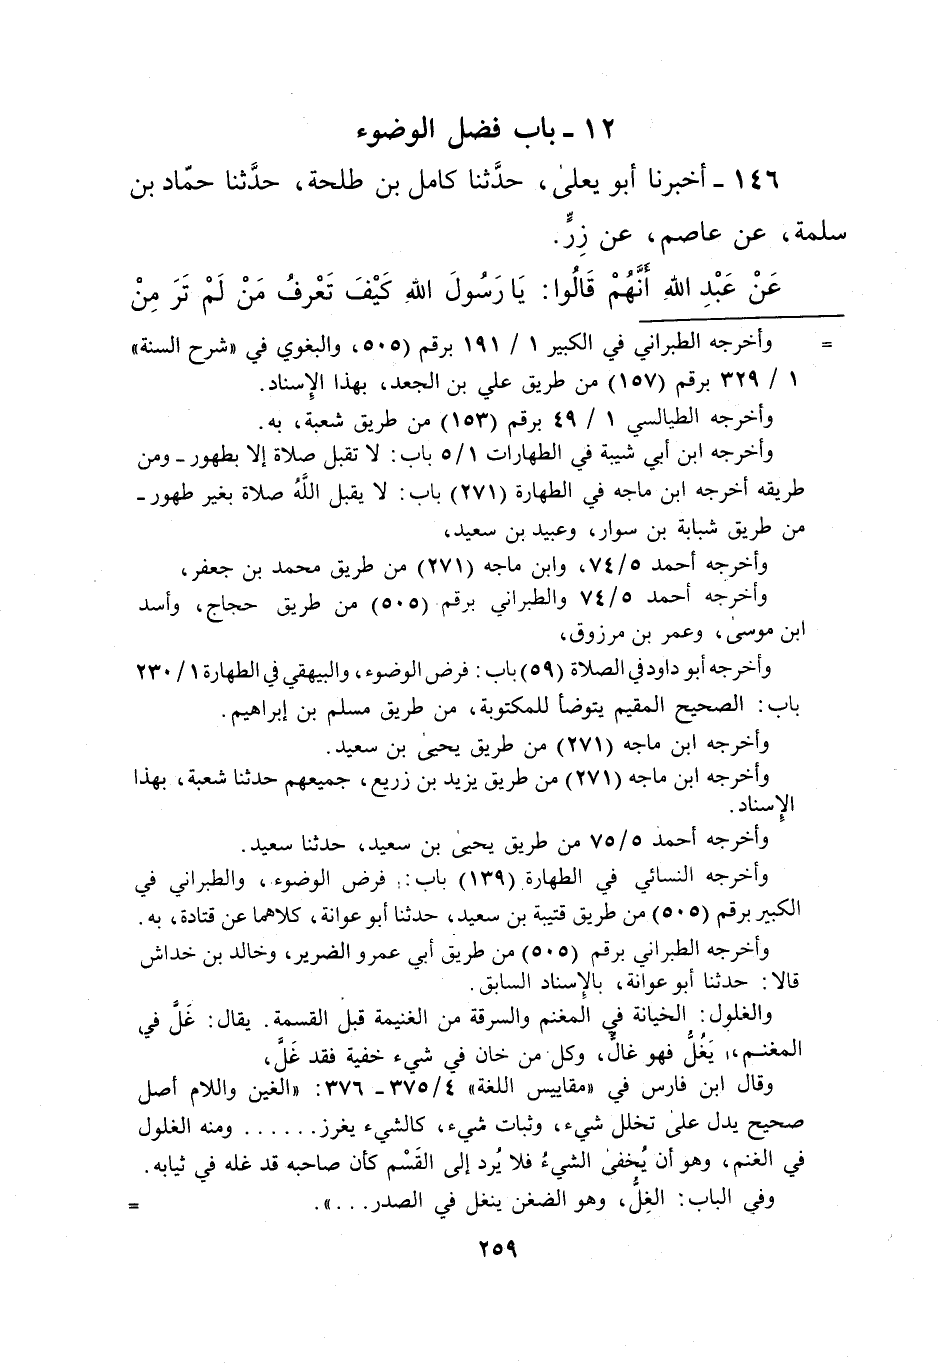 ١٢ - باب فضل الوضوء
١٤٦ - أخبرنا أبو يعلىٰ، حدَّثنا كامل بن طلحة، حدَّثنا حمّاد بن
سلمة، عن عاصم، عن زِرٍّ.
عَنْ عَبْدِ الله أَنَّهُمْ قَالُوا: يَا رَسُولَ الله كَيْفَ تَعْرِفُ مَنْ لَمْ تَرَ مِنْ
= وأخرجه الطبراني في الكبير ١ / ١٩١ برقم (٥٠٥)، والبغوي في «شرح السنة»
١ / ٣٢٩ برقم (١٥٧) من طريق علي بن الجعد، بهذا الإِسناد.
وأخرجه الطيالسي ١ / ٤٩ برقم (١٥٣) من طريق شعبة، به.
وأخرجه ابن أبي شيبة في الطهارات ٥/١ باب: لا تقبل صلاة إلا بطهور - ومن
طريقه أخرجه ابن ماجه في الطهارة (٢٧١) باب: لا يقبل اللَّهُ صلاة بغير طهور -
من طريق شبابة بن سوار، وعبيد بن سعيد،
وأخرجه أحمد ٧٤/٥، وابن ماجه (٢٧١) من طريق محمد بن جعفر،
وأخرجه أحمد ٧٤/٥ والطبراني برقم (٥٠٥) من طريق حجاج، وأسد
ابن موسىٰ، وعمر بن مرزوق،
وأخرجه أبو داود في الصلاة (٥٩) باب: فرض الوضوء، والبيهقي في الطهارة ٢٣٠/١
باب: الصحيح المقيم يتوضأ للمكتوبة، من طريق مسلم بن إبراهيم.
وأخرجه ابن ماجه (٢٧١) من طريق يحيىٰ بن سعيد.
وأخرجه ابن ماجه (٢٧١) من طريق يزيد بن زريع، جميعهم حدثنا شعبة، بهذا
الإِسناد.
وأخرجه أحمد ٧٥/٥ من طريق يحيىٰ بن سعيد، حدثنا سعيد.
وأخرجه النسائي في الطهارة (١٣٩) باب: فرض الوضوء، والطبراني في
الكبير برقم (٥٠٥) من طريق قتيبة بن سعيد، حدثنا أبو عوانة، كلاهما عن قتادة، به.
وأخرجه الطبراني برقم (٥٠٥) من طريق أبي عمرو الضرير، وخالد بن خداش
قالا: حدثنا أبو عوانة، بالإِسناد السابق.
والغلول: الخيانة في المغنم والسرقة من الغنيمة قبل القسمة. يقال: غَلَّ في
المغنم، يَغُلُّ فهو غالٌّ، وكل من خان في شيء خفية فقد غَلَّ،
وقال ابن فارس في «مقاييس اللغة» ٣٧٥/٤ - ٣٧٦: «الغين واللام أصل
صحيح يدل علىٰ تخلل شيء، وثبات شيء، كالشيء يغرز...... ومنه الغلول
في الغنم، وهو أن يُخفىٰ الشيءُ فلا يُرد إلى القَسْم كأن صاحبه قد غله في ثيابه.
وفي الباب: الغِلُّ، وهو الضغن ينغل في الصدر...». =
٢٥٩